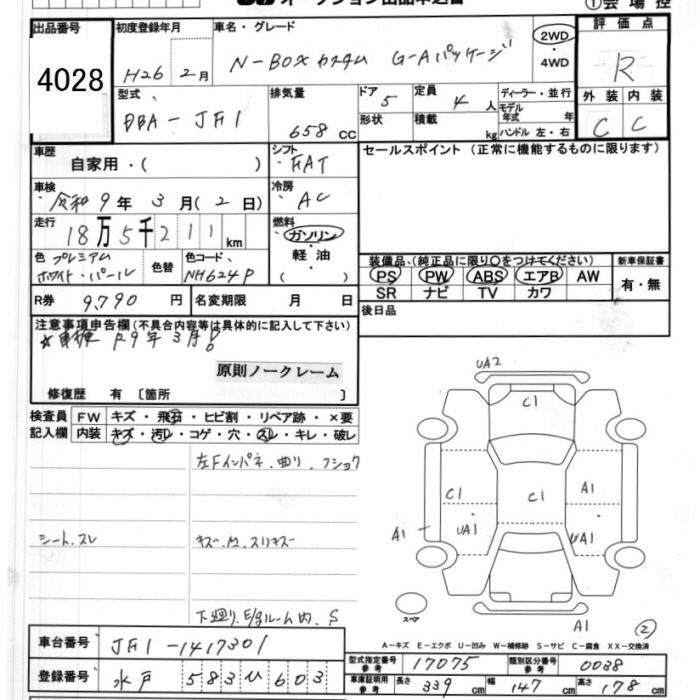 オークション出品申込書
①会場控
出品番号
4028
初度登録年月
H26 2月
車名・グレード
N-BOXカスタム G-Aパッケージ
2WD
・
4WD
評価点
R
外装 内装
C C
型式
DBA-JF1
排気量
658 cc
ドア 5
形状
定員 4人
積載 kg
ディーラー・並行
モデル年式 年式
ハンドル 左・右
車歴
自家用・( )
シフト
FAT
セールスポイント (正常に機能するものに限ります)
車検
令和9年3月(2日)
冷房
AC
走行
18万5千211km
燃料
ガソリン
軽油
( )
色 プレミアムホワイト・パール
色替
色コード
NH624P
装備品 (純正品に限り○をつけてください)
PS PW ABS エアB AW
SR ナビ TV カワ
新車保証書
有・無
R券 9,790円
名変期限 月 日
後日品
注意事項申告欄(不具合内容等は具体的に記入して下さい)
★車検 R9年3月!
原則ノークレーム
修復歴 有〔箇所 〕
検査員記入欄
FW キズ・飛石・ヒビ割・リペア跡・×要
内装 キズ・汚レ・コゲ・穴・スレ・キレ・破レ
左Fインパネ、曲り、フショク
シート、スレ
キズ・凹、スリキズ
下廻り、E/gルーム内、S
UA2
C1
C1
C1
A1
A1
UA1
UA1
スペア
A1
②
A-キズ E-エクボ U-凹み W-補修跡 S-サビ C-腐食 XX-交換済
車台番号
JF1-1417301
登録番号
水戸 583ひ603
型式指定番号 参考 17075
類別区分番号 参考 0038
車庫証明用 参考 長さ 339cm 幅 147cm 高さ 178cm